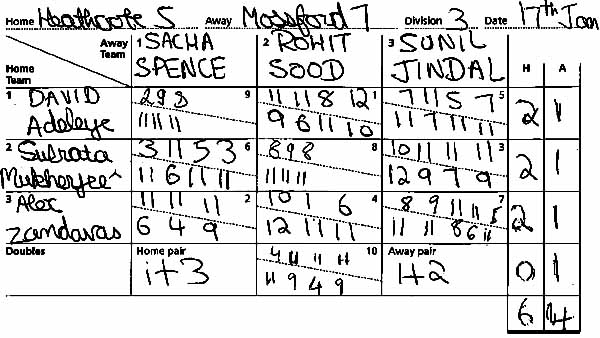 Home Heathcote 5 Away Mossford 7 Division 3 Date 17th Jan
Away Team 1 SACHA SPENCE 2 ROHIT SOOD 3 SUNIL JINDAL H A
Home Team
1 DAVID Adeleye 9 1 5 2 1
2 9 8 11 11 8 12 7 11 5 7
11 11 11 9 6 11 10 11 7 11 11
2 Subrata Mukherjee 6 8 3 2 1
3 11 5 3 8 9 8 10 11 11 11
11 6 11 11 11 11 11 12 9 7 9
3 Alex Zandavas 2 4 7 2 1
11 11 11 10 1 6 8 9 11 11 5
6 4 9 12 11 11 11 11 8 6 11
Doubles Home pair 1+3 10 Away pair 1+2 0 1
4 11 11 11
11 9 4 9
6 4